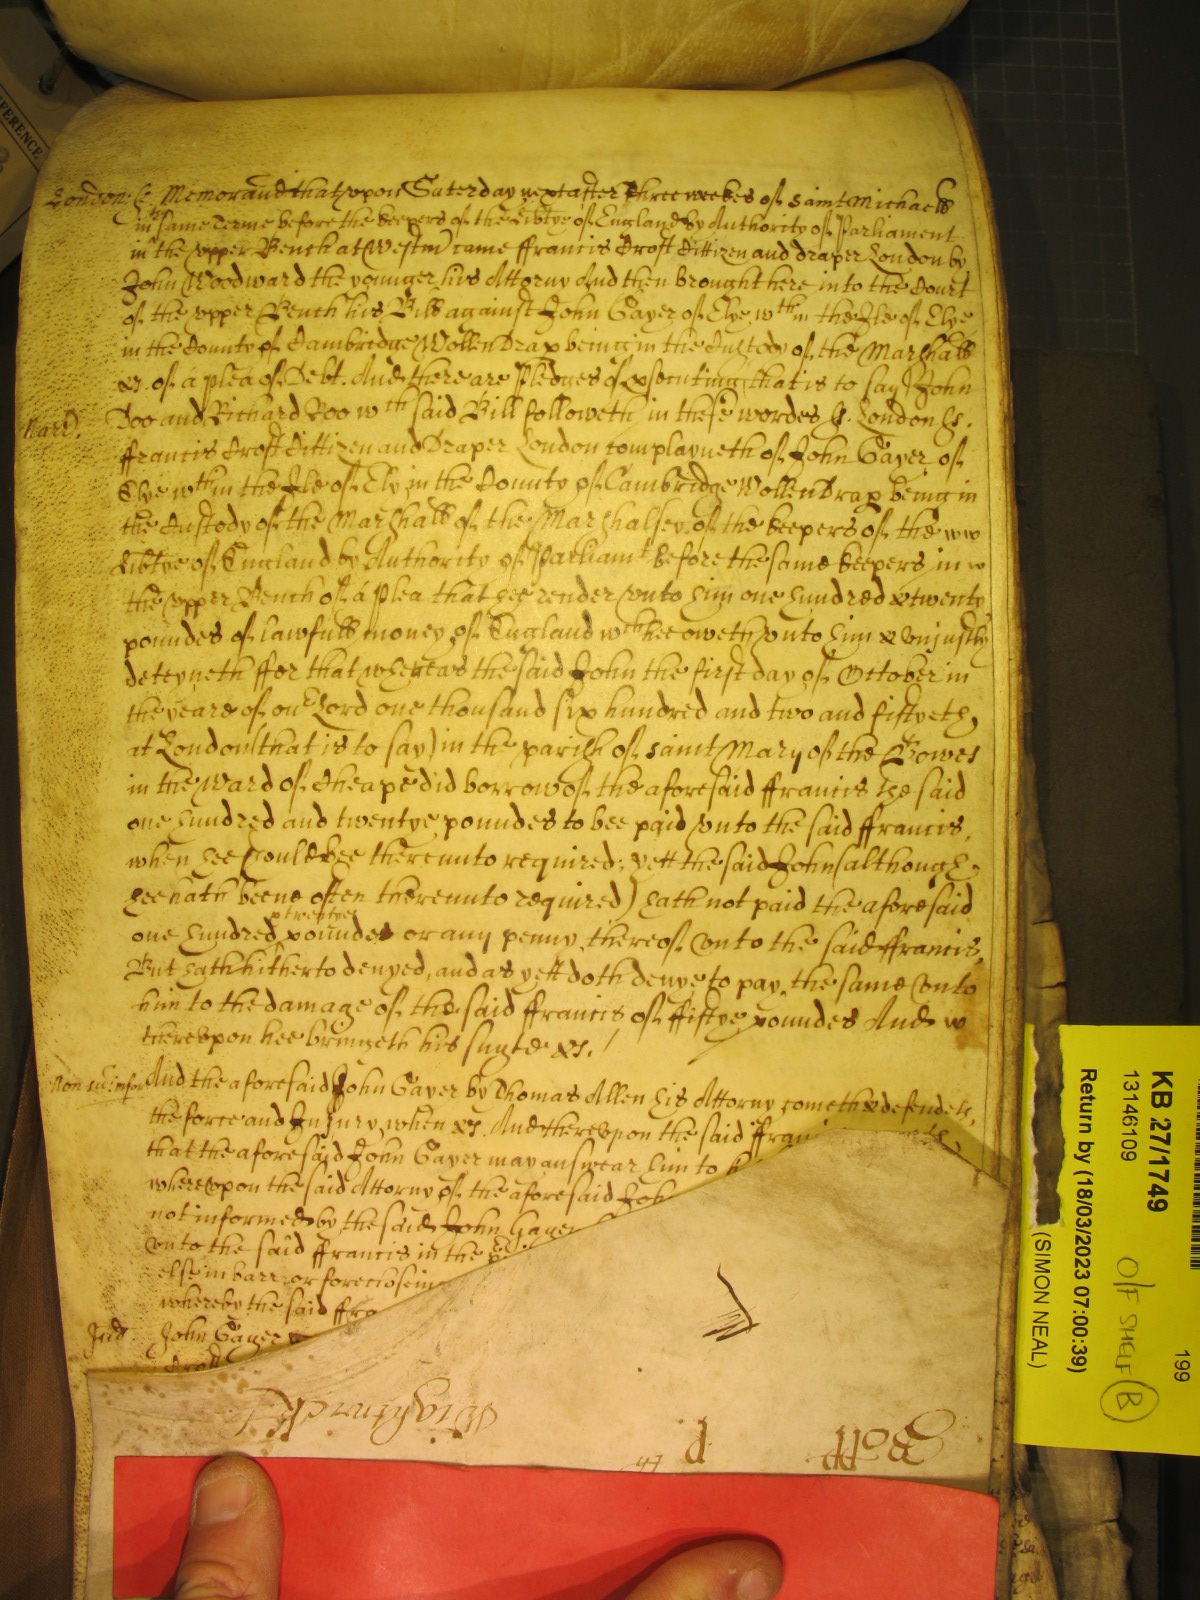 London. ss. Memorand that upon Saterday next after Three weekes of saint Michaell
in ye same Terme before the keepers of the Libtye of England by Authority of Parliament
in the upper Bench at Westm came ffrancis Croft Cittizen and draper London by
John Woodward the younger his Attorny And then brought here into the Court
of the upper Bench his Bill against John Gayer of Elye wthin the Ile of Elye
in the County of Cambridge WollenDrap being in the Custody of the Marshall
&c. of a plea of Debt. And there are Pledges of prosecuting (that is to say) John
Doo and Richard Roo wch said Bill followeth in these wordes ss. London ss.
Narr.
ffrancis Croft Cittizen and Draper London complayneth of John Gayer of
Elye wthin the Ile of Ely in the County of Cambridge WollenDrap being in
the Custody of the Marshall of the Marshalsey of the keepers of the
Libtye of England by Authority of Parliamt before the same keepers in
the upper Bench of a plea that hee render unto him one hundred & twenty
poundes of lawfull money of England wch hee oweth unto him & unjustly
deteyneth ffor that whereas the said John the first day of October in
the yeare of our Lord one thousand six hundred and two and fiftyeth
at London (that is to say) in the parish of saint Mary of the Bowes
in the Ward of Cheape did borrow of the aforesaid ffrancis the said
one hundred and twentye poundes to bee paid unto the said ffrancis
when hee should bee thereunto required; yett the said John (although
hee hath beene often thereunto required) hath not paid the aforesaid
& twentye
one hundred poundes or any penny thereof unto the said ffrancis
But hath hitherto denyed, and as yett doth denye to pay the same unto
him to the damage of the said ffrancis of ffiftye poundes And
thereupon hee bringeth his suyte &c.
Non su: infor And the aforesaid John Gayer by Thomas Allen his Attorny cometh & defendeth
the force and Injury when &c. And thereupon the said ffrancis
that the aforesaid John Gayer may answear him to
whereupon the said Attorny of the aforesaid John
not informed by the said John Gayer
unto the said ffrancis in the
else in barr or foreclosing
whereby the said ffra
Jud. John Gayer
Croft
REFERENCE
KB 27/1749
13146109
Return by (18/03/2023 07:00:39)
(SIMON NEAL)
199
O/F SHELF B